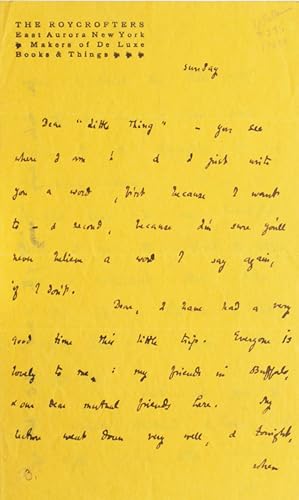 THE ROYCROFTERS
East Aurora New York
Makers of De Luxe
Books & Things
Sunday
Dear "Little Thing" - you see
where I am! & I just write
you a word, first because I want
to - & second, because I'm sure you'll
never believe a word I say again,
if I don't.
Dear, I have had a very
good time this little trip. Everyone is
lovely to me, : my friends in Buffalo,
& our dear mutual friends here. My
lecture went down very well, & tonight,
when